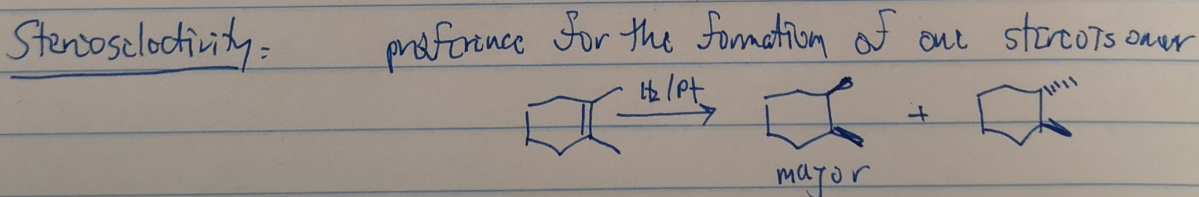 Stereoselectivity: preference for the formation of one stereoisomer
H₂/Pt
+
major